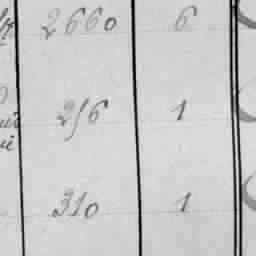 2660 6
256 1
310 1